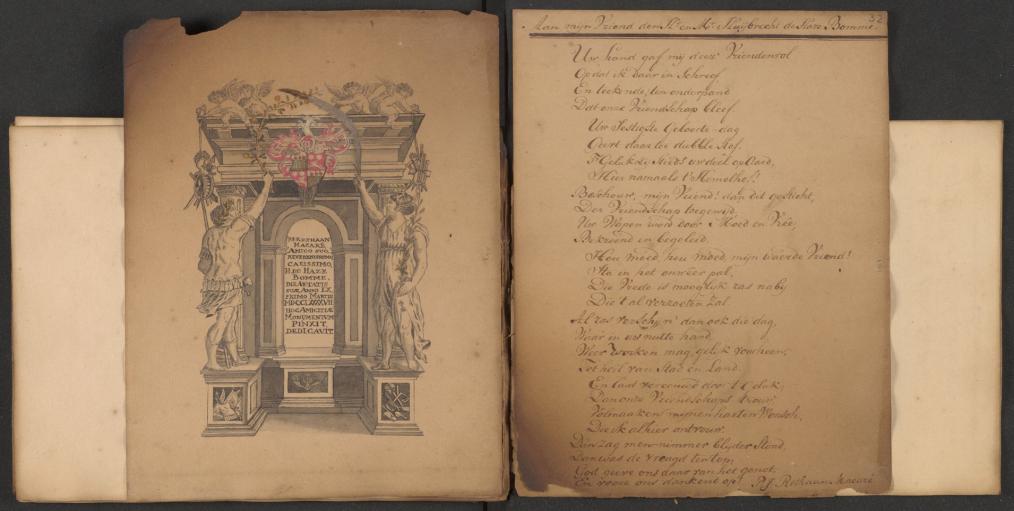 REKETHAAN
MACARÉ,
AMICO SUO,
REVERENDISSIMO
CARISSIMO,
H. DE HAZE
BOMME,
DIE ÆTATIS
SUÆ ANNO LX
PRIMO MARTII
MDCCLXXXXVII
HOC AMICITIÆ
MONUMENTUM
PINXIT,
DEDICAVIT.
32
Aan mijn Vriend den Hr en Mr Huijbrecht de Haze Bomme.
Uw hand gaf mij deeze Vriendenrol
Opdat ik daar in Schreef
En teekende, ten onderpand
Dat onze Vriendschap bleef
Uw Sestigste Geboorte-dag
Geeft daar toe dubble Stof.
't Geluk zij Steeds uw deel op Aard,
Hier namaals 't Hemelhof!
Beschouw, mijn Vriend! dan dit gesticht,
Der Vriendschap toegewijd,
Uw Wapen word door Moed en Vree,
Bekroond en begeleid.
Hou moed, hou moed, mijn waarde Vriend!
Sta in het onweer pal,
Die Vrede is mooglijk ras nabij
Die 't al verzoeten zal.
Al ras verschijn' dan ook die dag,
Waar in uw nutte hand
Weer werken mag, gelijk voorheen,
Tot heil van Stad en Land.
En laat vereeuwd door 't Geluk,
Dan onze Vriendschaps trouw
Volmaaken mijnen harten Wensch,
Die ik alhier ontvouw.
Dan zag men nimmer blijder Stond,
Dan was de vreugd ten top,
God geeve ons daar van het genot
En voere ons dankend op! P. J. Rethaan Macaré